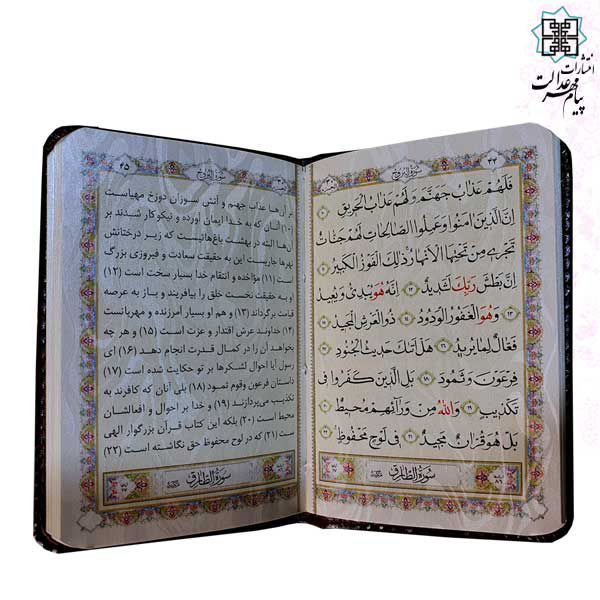 انتشارات
پیام مهر عدالت
۴۴
سورة البروج
فَلَهُمْ عَذَابُ جَهَنَّمَ وَلَهُمْ عَذَابُ الْحَرِيقِ ۱۰
اِنَّ الَّذِينَ امَنُوا وَعَمِلُوا الصَّالِحَاتِ لَهُمْ جَنَّاتٌ
تَجْرِي مِنْ تَحْتِهَا الْاَنْهَارُ ذٰلِكَ الْفَوْزُ الْكَبِيرُ ۱۱
اِنَّ بَطْشَ رَبِّكَ لَشَدِيدٌ ۱۲ اِنَّهُ هُوَ يُبْدِئُ وَيُعِيدُ
۱۳ وَهُوَ الْغَفُورُ الْوَدُودُ ۱۴ ذُوالْعَرْشِ الْمَجِيدُ ۱۵
فَعَّالٌ لِمَا يُرِيدُ ۱۶ هَلْ اَتٰيكَ حَدِيثُ الْجُنُودِ ۱۷
فِرْعَوْنَ وَثَمُودَ ۱۸ بَلِ الَّذِينَ كَفَرُوا فِى
تَكْذِيبٍ ۱۹ وَاللّٰهُ مِنْ وَرَآئِهِمْ مُحِيطٌ ۲۰
بَلْ هُوَ قُرْانٌ مَجِيدٌ ۲۱ فِى لَوْحٍ مَحْفُوظٍ ۲۲
سُورَةُ الطَّارِقِ
۴۵
سورة البروج
بر آن‌ها عذاب جهنم و آتش سوزان دوزخ مهیاست
(۱۰) آنان که به خدا ایمان آورده و نیکوکار شدند بر
آن‌ها البته در بهشت باغ‌هائیست که زیر درختانش
نهرها جاریست این به حقیقت سعادت و فیروزی بزرگ
است (۱۱) مؤاخذه و انتقام خدا بسیار سخت است (۱۲)
و به حقیقت نخست خلق را بیافریند و باز به عرصه
قیامت برگرداند (۱۳) و هم او بسیار آمرزنده و مهربانست
(۱۴) خداوند عرش اقتدار و عزت است (۱۵) و هر چه
بخواهد آن را در کمال قدرت انجام دهد (۱۶) ای
رسول آیا احوال لشکرها بر تو حکایت شده است (۱۷)
داستان فرعون وقوم ثمود (۱۸) بلی آنان که کافرند به
تکذیب می‌پردازند (۱۹) و خدا بر احوال و افعالشان
محیط است (۲۰) بلکه این کتاب قرآن بزرگوار الهی
است (۲۱) که در لوح محفوظ حق نگاشته است (۲۲)
سُورَةُ الطَّارِقِ